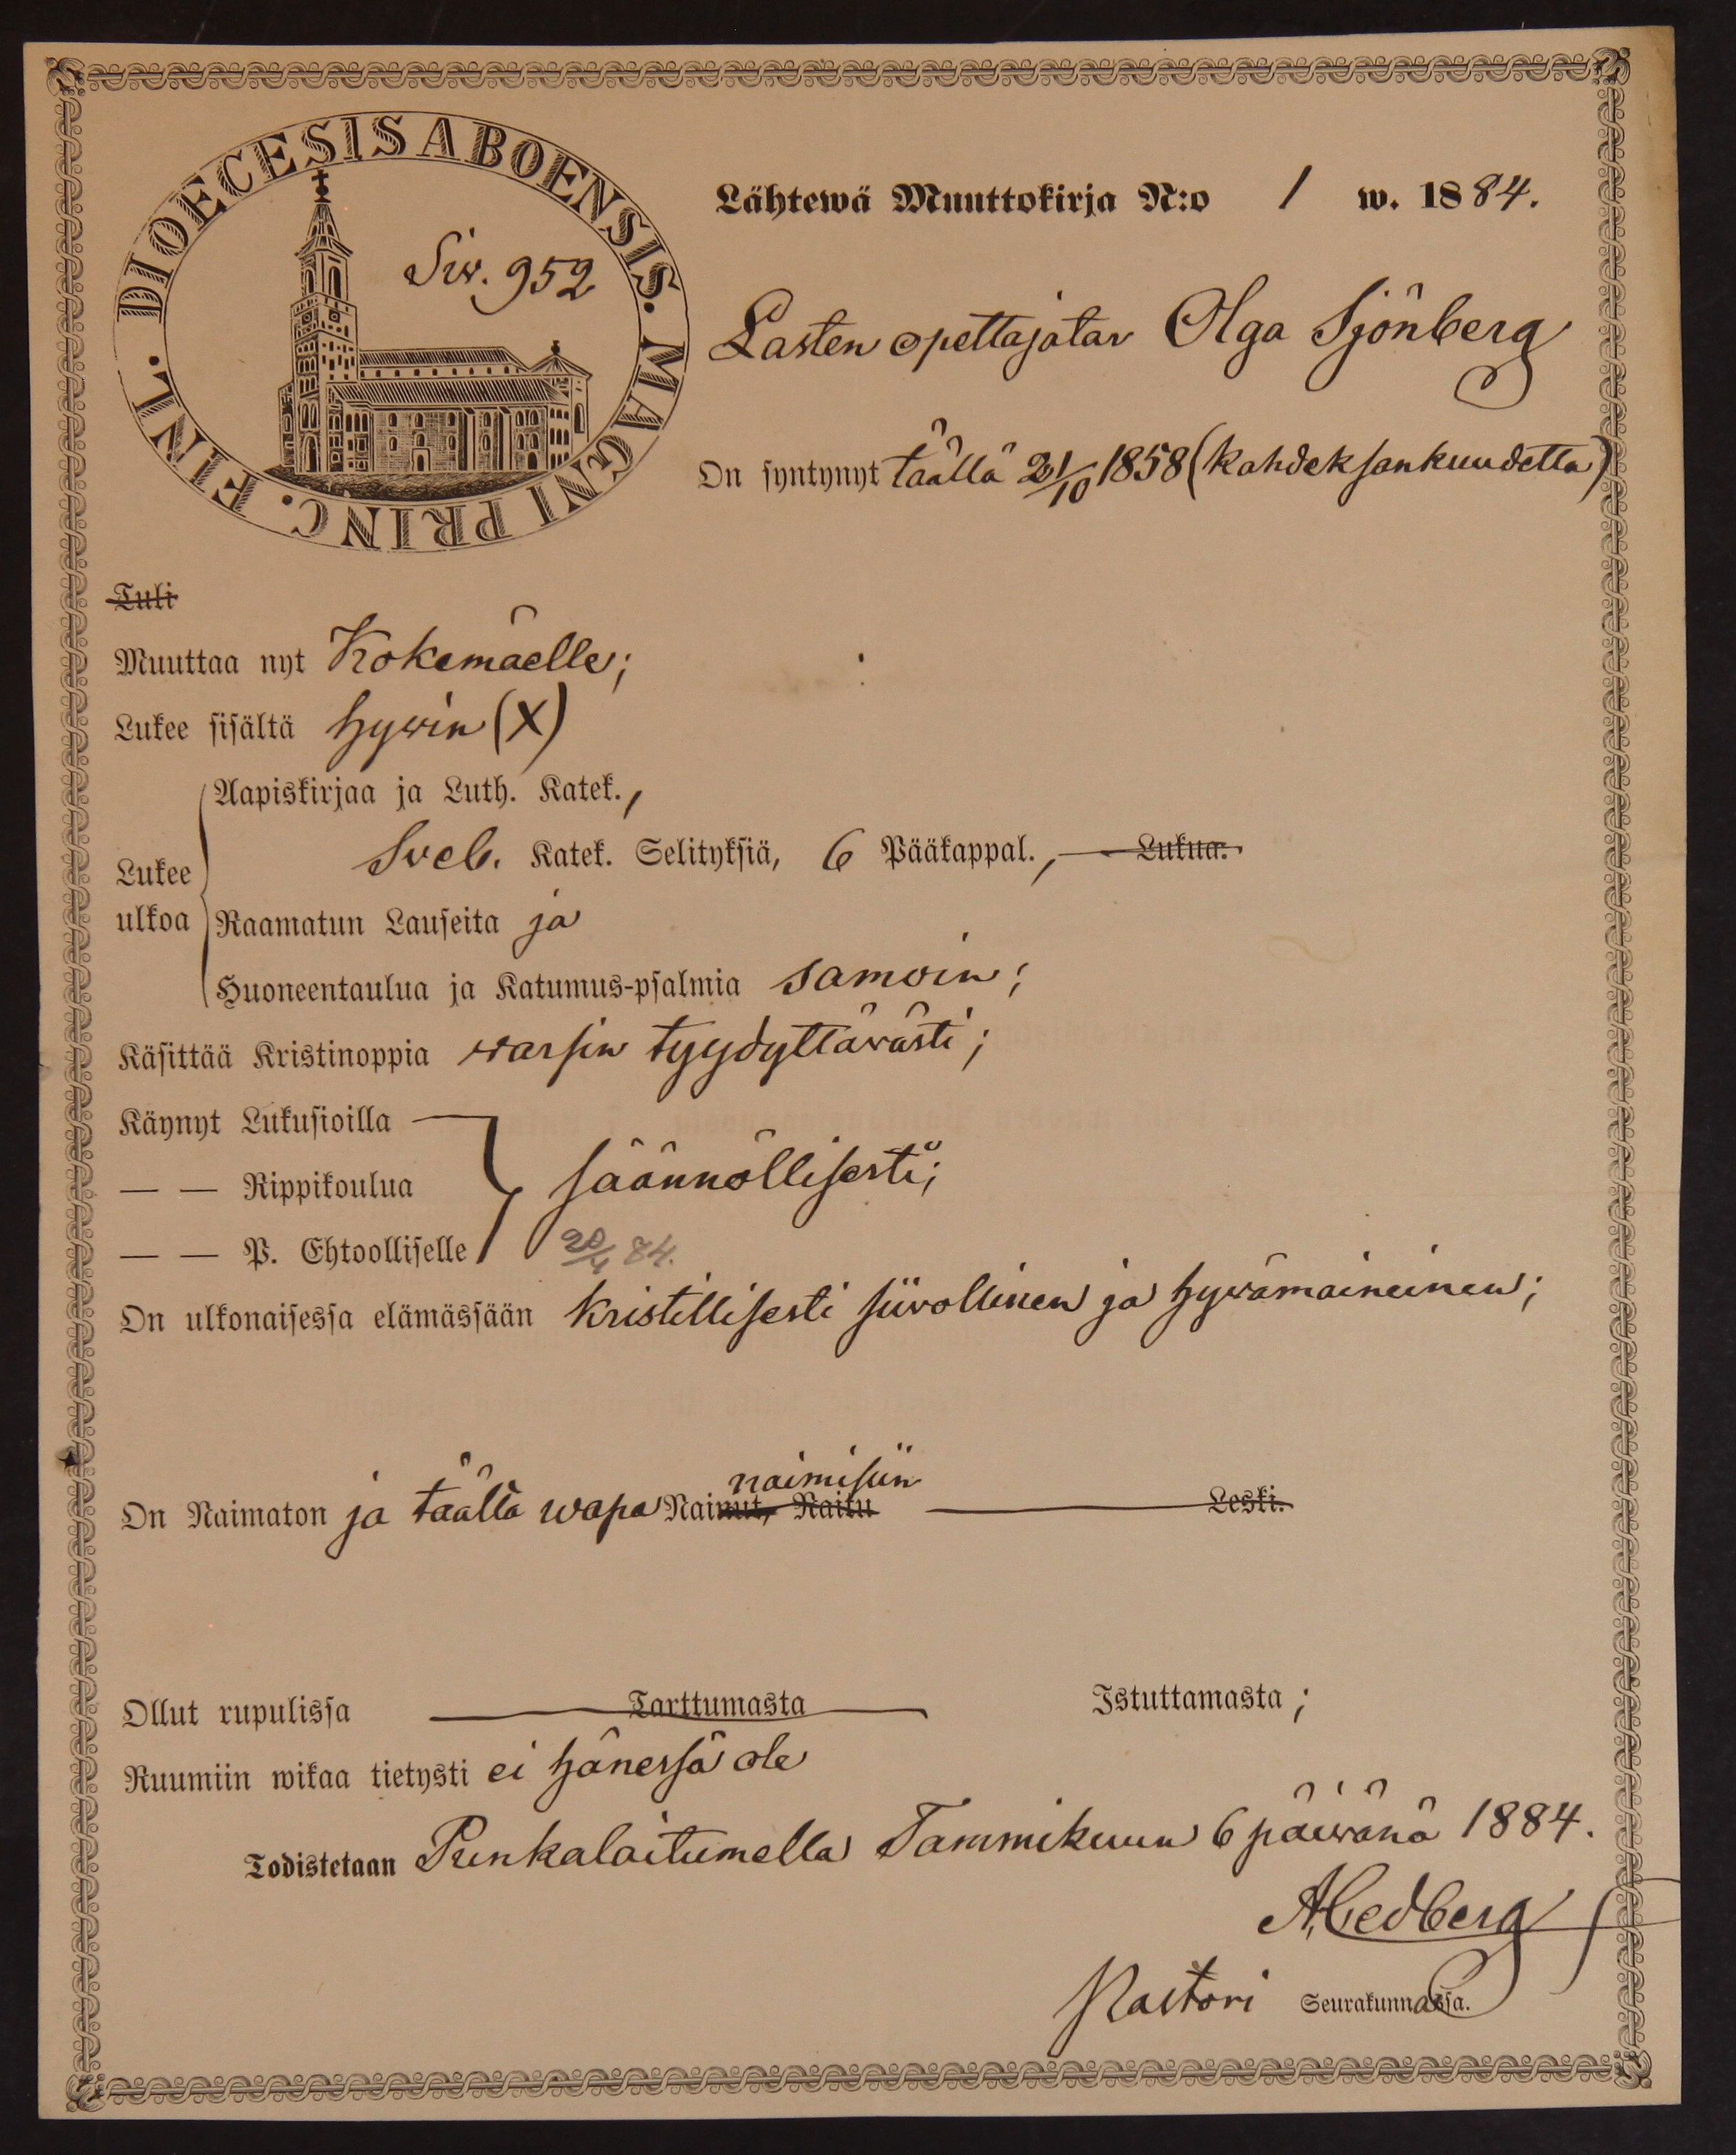 DIOECESIS ABOENSIS. MAGNI PRINC. FINL.
Siv. 952
Lähtewä Muuttokirja N:o 1 w. 1884.
Lasten opettajatar Olga Sjönberg
On syntynyt täällä 21/10 1858 (kahdeksankuudetta)
Tuli
Muuttaa nyt Kokemäelle;
Lukee sisältä hywin (X)
Aapiskirjaa ja Luth. Katek.,
Sveb. Katek. Selityksiä, 6 Pääkappal., Lukua.
Lukee
ulkoa
Raamatun Lauseita ja
Huoneentaulua ja Katumus-psalmia samoin;
Käsittää Kristinoppia warsin tyydyttävästi;
Käynyt Lukusioilla
— — Rippikoulua säännöllisesti;
— — P. Ehtoolliselle 20/4 84.
On ulkonaisessa elämässään kristillisesti siivollinen ja hywämaineinen;
naimisiin
On Naimaton ja täällä wapa Nainut, Naitu Leski.
Ollut rupulissa Tarttumasta Istuttamasta;
Ruumiin wikaa tietysti ei hänessä ole
Todistetaan Punkalaitumella Tammikuun 6 päiwänä 1884.
A Hedberg
Pastori Seurakunnassa.